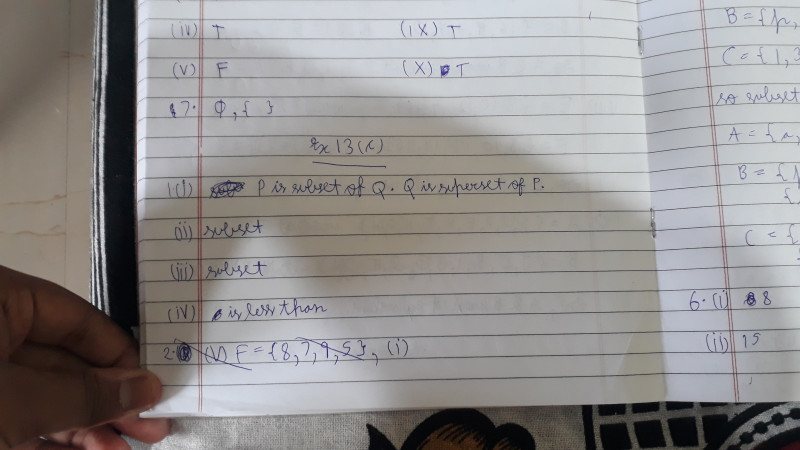 (iv) T (ix) T
(v) F (x) T
7. Φ, { }
Ex 13(C)
1(i) P is subset of Q. Q is superset of P.
(ii) subset
(iii) subset
(iv) is less than
2. (v) F = {8, 7, 9, 5}, (i)
B = {p,
C = {1, 3
so subset
A = {a,
B = {p
{
C = {
6. (i) 8
(ii) 15